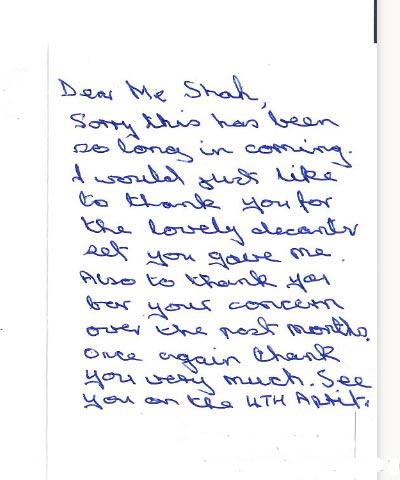 Dear Mr Shah,
Sorry this has been
so long in coming.
I would just like
to thank you for
the lovely decanter
set you gave me.
Also to thank you
for your concern
over the past months.
Once again thank
you very much. See
you on the 4TH April.